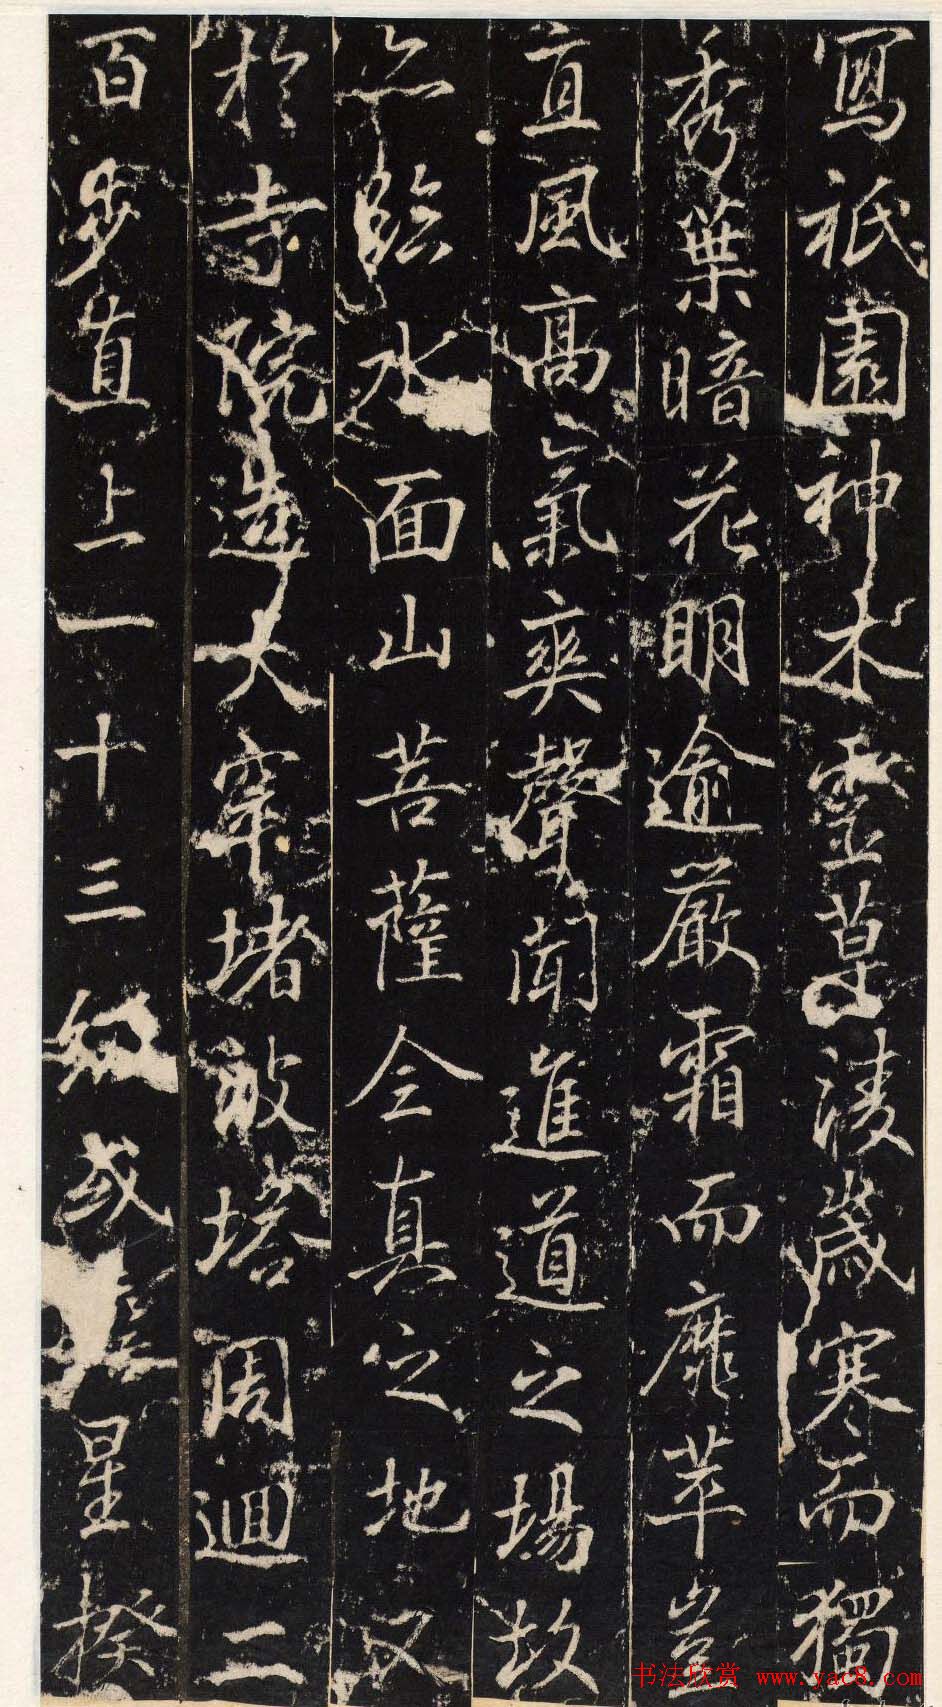 寫祇園神木靈草淩歲寒而獨
秀葉暗花明逾嚴霜而靡萃豈
直風高氣爽聲聞進道之場故
亦臨水面山菩薩全真之地又
於寺院造大窣堵坡塔周迴二
百步直上一十三級或瞻星揆
书法欣赏 www.yac8.com